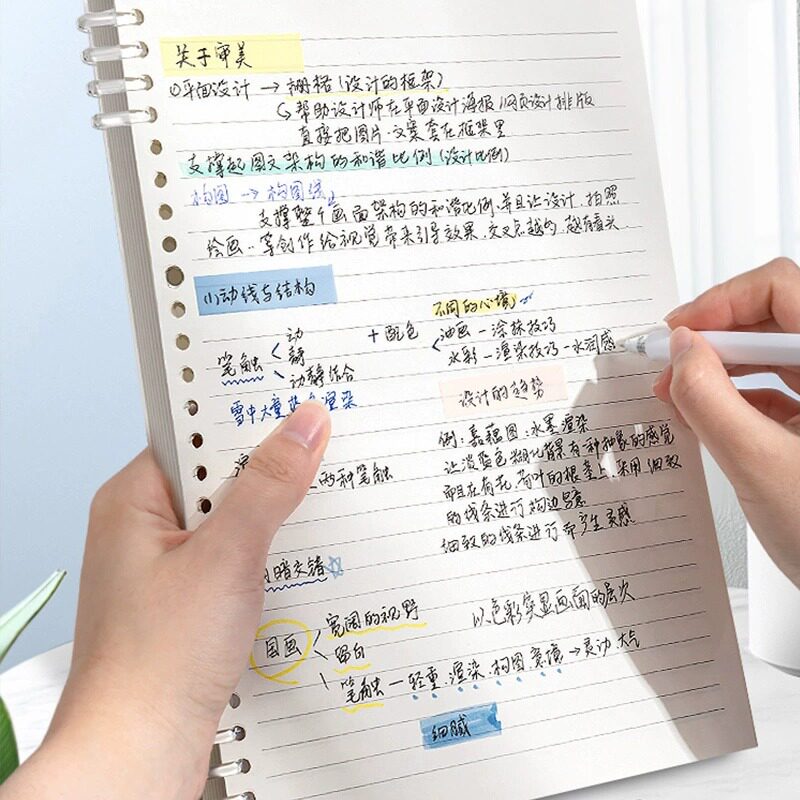 关于审美
①平面设计 → 栅格(设计的框架)
↳帮助设计师在平面设计海报/网页设计排版
直接把图片·文案套在框架里
支撑起图文架构的和谐比例(设计比例)
构图 → 构图线
支撑整个画面架构的和谐比例,并且让设计,拍照
绘画..等创作给视觉带来引导效果,交叉点越多,越有看头
(1)动线与结构
不同的心境
笔触 < 动
静
动静结合
+ 配色
油画 — 涂抹技巧
水彩 — 渲染技巧 — 水润感
雪中大量 渲染
设计的趋势
两种笔触
例:嘉藕图:水墨渲染
让淡蓝色糊化背景有一种抽象的感觉
而且在荷花,荷叶的根茎上,采用细致
的线条进行勾边
细致的线条进行 产生灵感
暗交错☆
国画 < 宽阔的视野
留白
笔触 — 轻重.渲染.构图意境 → 灵动.大气
以色彩突显画面的层次
细腻